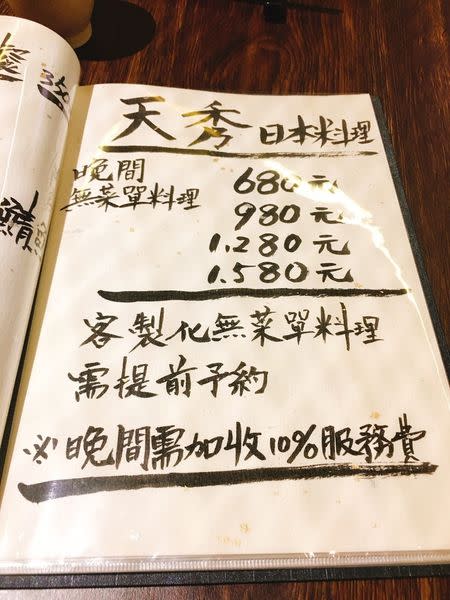 天秀 日本料理
晚間
無菜單料理
680元
980元
1.280元
1.580元
客製化無菜單料理
需提前予約
※晚間需加收10%服務費
350
鯖